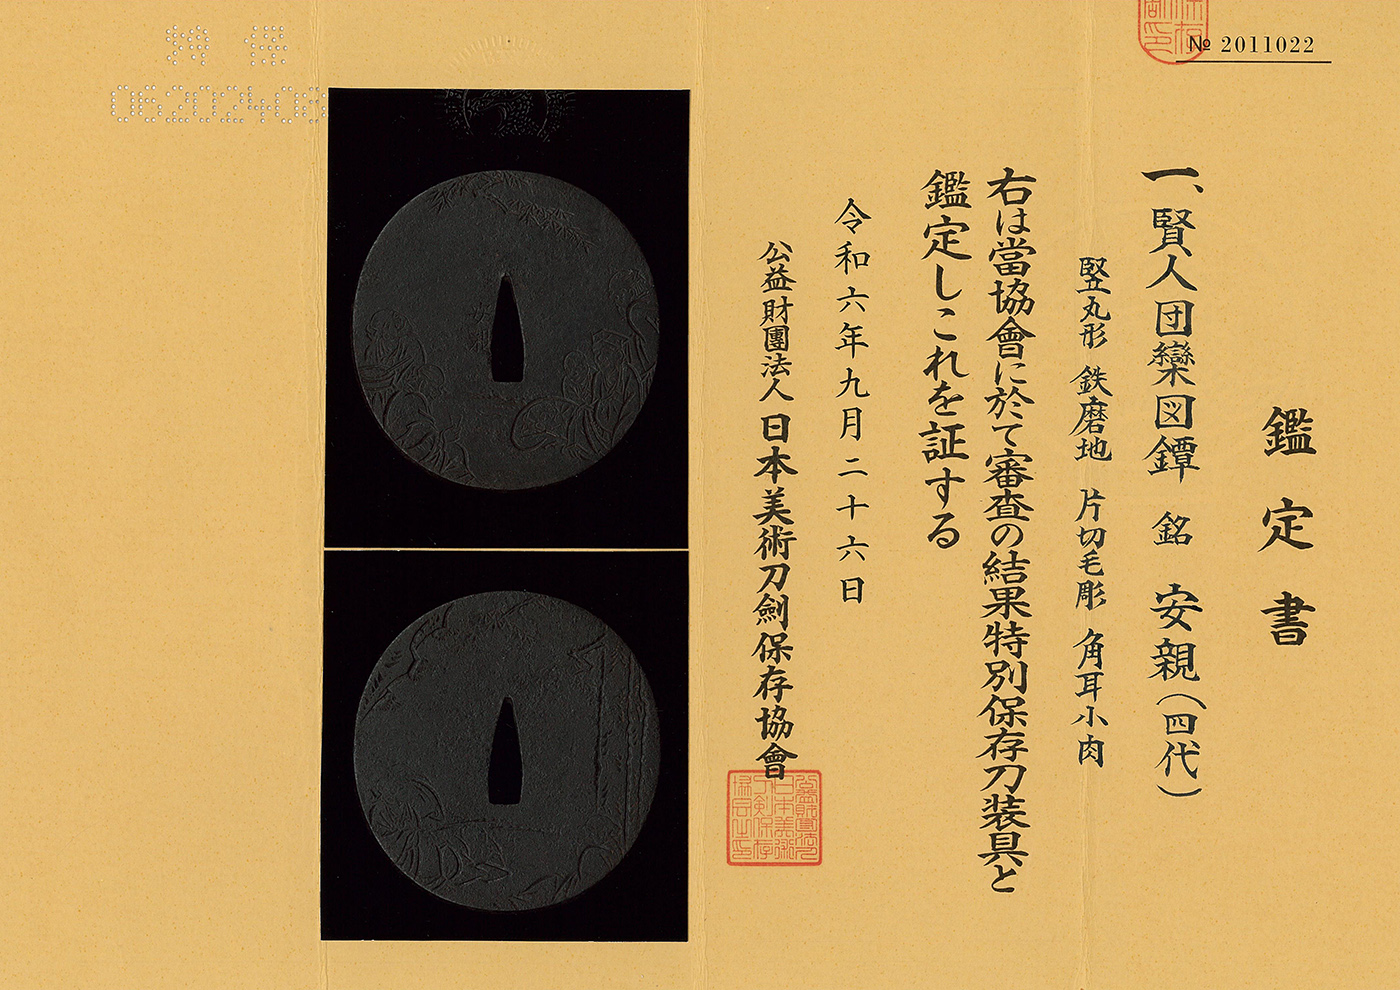 № 2011022
鑑定書
一、賢人団欒図鐔 銘 安親(四代)
竪丸形 鉄磨地 片切毛彫 角耳小肉
右は當協會に於て審査の結果特別保存刀装具と
鑑定しこれを証する
令和六年九月二十六日
公益財團法人 日本美術刀劍保存協會